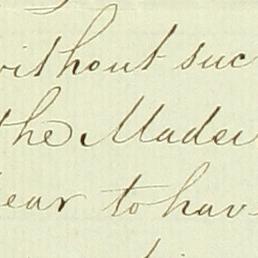 without suc
the Madei
ear to hav